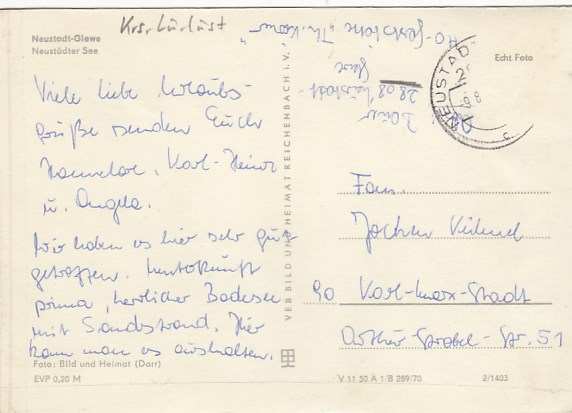 Neustadt-Glewe
Neustädter See
Krs. Lu.lust
Viele liebe Urlaubs-
grüße senden Euch
Hannelore, Karl-Heinz
u. Angela.
Wir haben es hier sehr gut
getroffen. Unterkunft
prima, herrlicher Badesee
mit Sandstrand. Hier
kann man es aushalten.
Foto: Bild und Heimat (Darr)
EVP 0,20 M
VEB BILD UND HEIMAT REICHENBACH i. V.
HO-Gaststätte "Th. Körner"
2808 Neustadt-
Glewe
Echt Foto
NEUSTAD
Fam.
Jochen
90 Karl-Marx-Stadt
Arthur-Strobel-Str. 51
V 11 50 A 1/B 289/70
2/1403